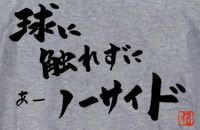 球に
触れずに
あー ノーサイド